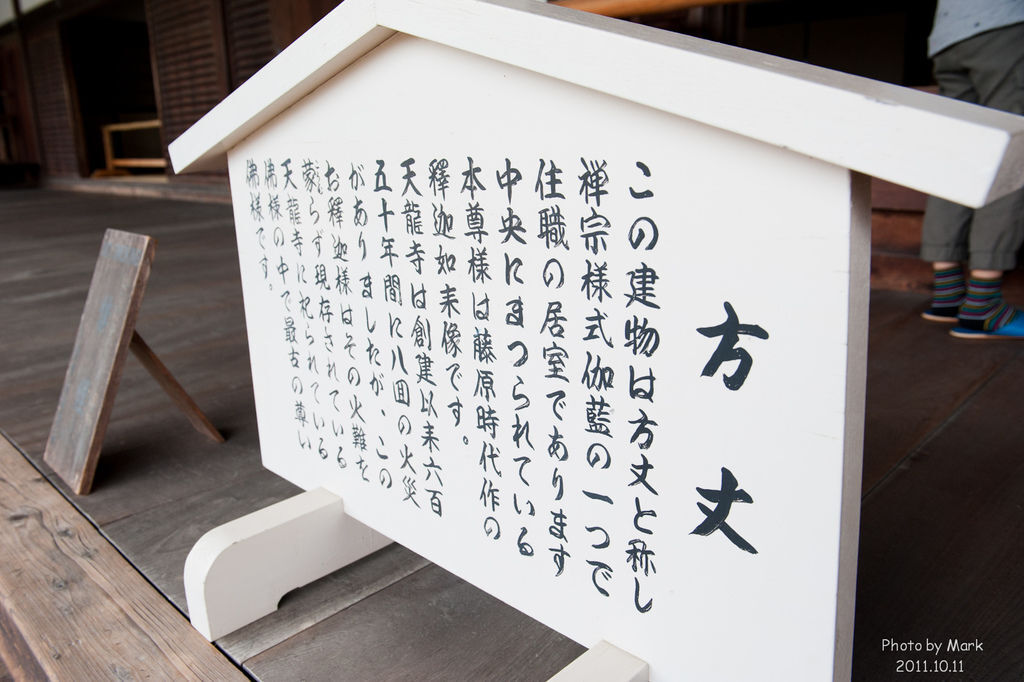 方丈
この建物は方丈と称し
禅宗様式伽藍の一つで
住職の居室であります
中央にまつられている
本尊様は藤原時代作の
釋迦如来像です。
天龍寺は創建以来六百
五十年間に八回の火災
がありましたが、この
お釋迦様はその火難を
蒙らず現存されている
天龍寺に祀られている
佛様の中で最古の尊い
佛様です。
Photo by Mark
2011.10.11